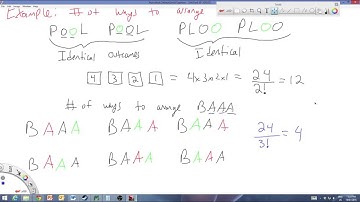 Example: # of ways to arrange
POOL POOL PLOO PLOO
Identical outcomes Identical
4 3 2 1 = 4x3x2x1 = 24/2! = 12
# of ways to arrange BAAA
BAAA BAAA BAAA 24/3! = 4
BAAA BAAA BAAA